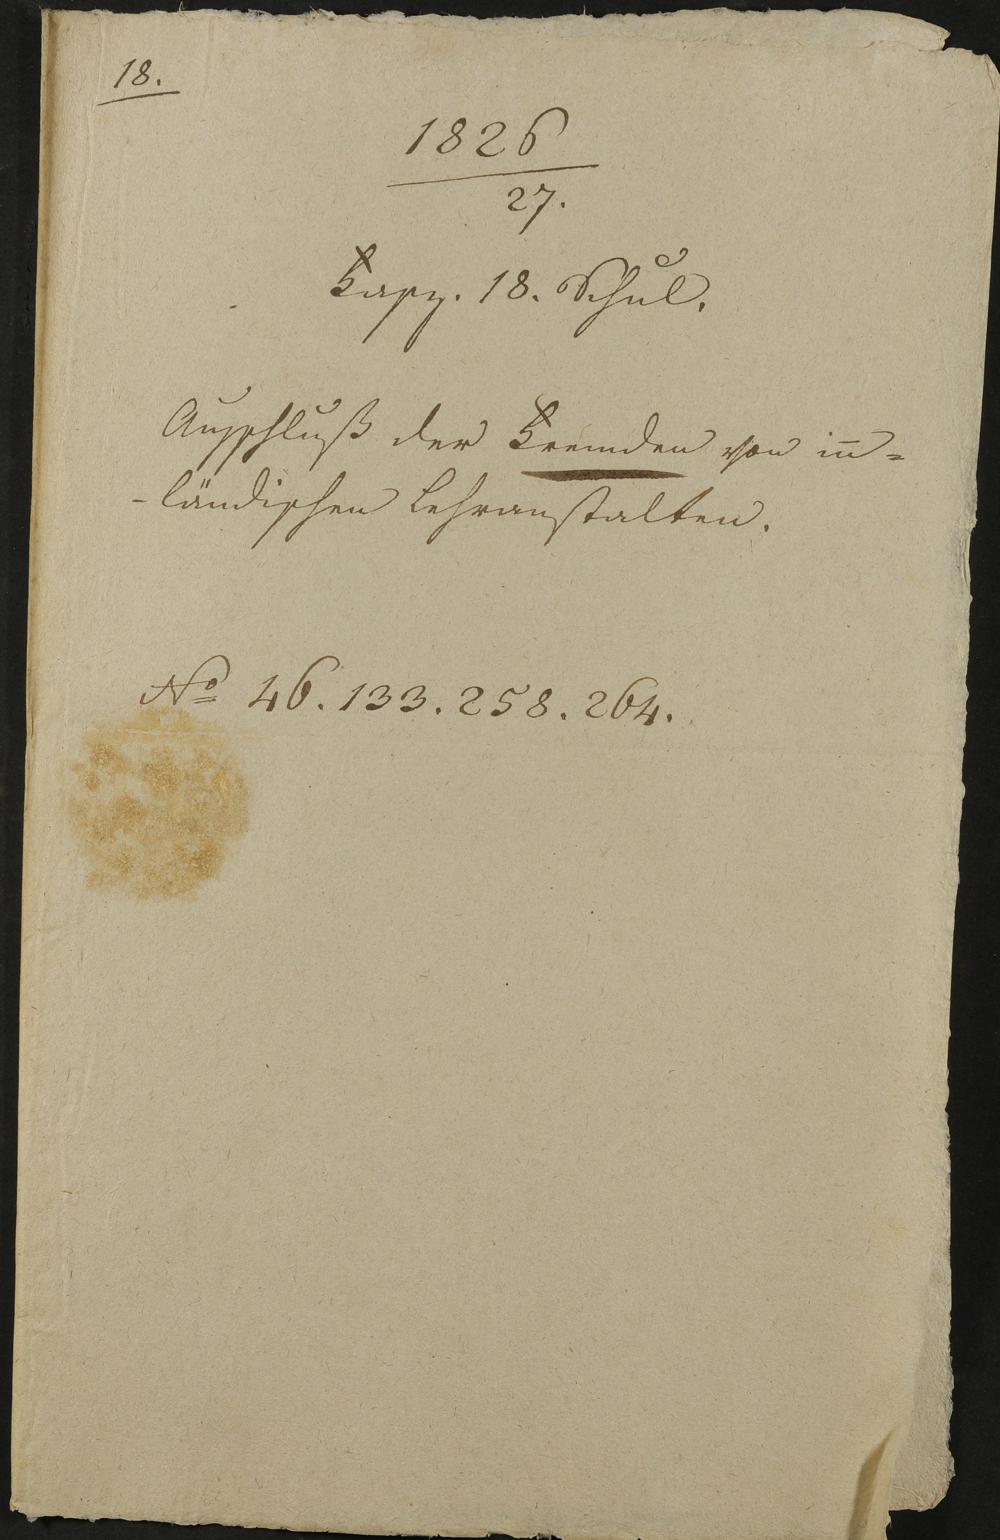 18.
1826
27.
Fasz. 18. Schul.
Ausschluß der Fremden von in̅=
-ländischen Lehranstalten.
No 46. 133. 258. 264.